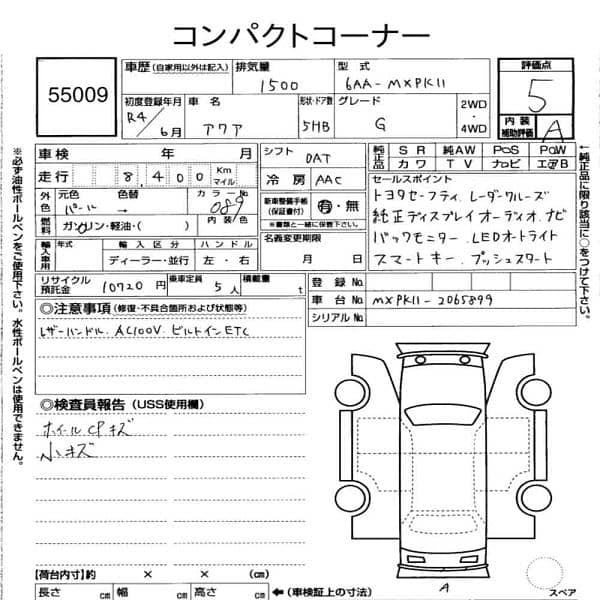 コンパクトコーナー
55009
車歴 (自家用以外は記入) 排気量 1500 型式 6AA-MXPK11 評価点 5
初度登録年月 R4/6月 車名 アクア 形状・ドア数 5HB グレード G 2WD・4WD 内装補助評価 A
車検 年 月 シフト DAT 純正品 SR 純AW PS PW
カワ TV ナビ エアB
走行 8,400 Km マイル 冷房 AAC
セールスポイント
外色 元色 パール 色替 → カラーNo. 089 内装色
新車整備手帳(保証書付) 有・無 ※書類と一緒に保管下さい。
トヨタセーフティ. レーダークルーズ
燃料 ガソリン・軽油・( )
純正ディスプレイオーディオ. ナビ
輸入車用 年式 輸入区分 ディーラー・並行 ハンドル 左・右 名義変更期限 月 日
バックモニター. LEDオートライト
スマートキー. プッシュスタート
リサイクル預託金 10720円 乗車定員 5人 積載量 t
登録No.
車台No. MXPK11-2065899
シリアルNo.
◎注意事項 (修復・不具合箇所および状態等)
レザーハンドル. AC100V. ビルトインETC
◎検査員報告 (USS使用欄)
ホイールCPキズ
小キズ
【荷台内寸】約 × × (cm)
長さ cm 幅 cm 高さ cm ←(車検証上の寸法)
A
スペア
※必ず油性ボールペンをご使用下さい。水性ボールペンは使用できません。
←純正品に限り該当に○をつけて下さい。